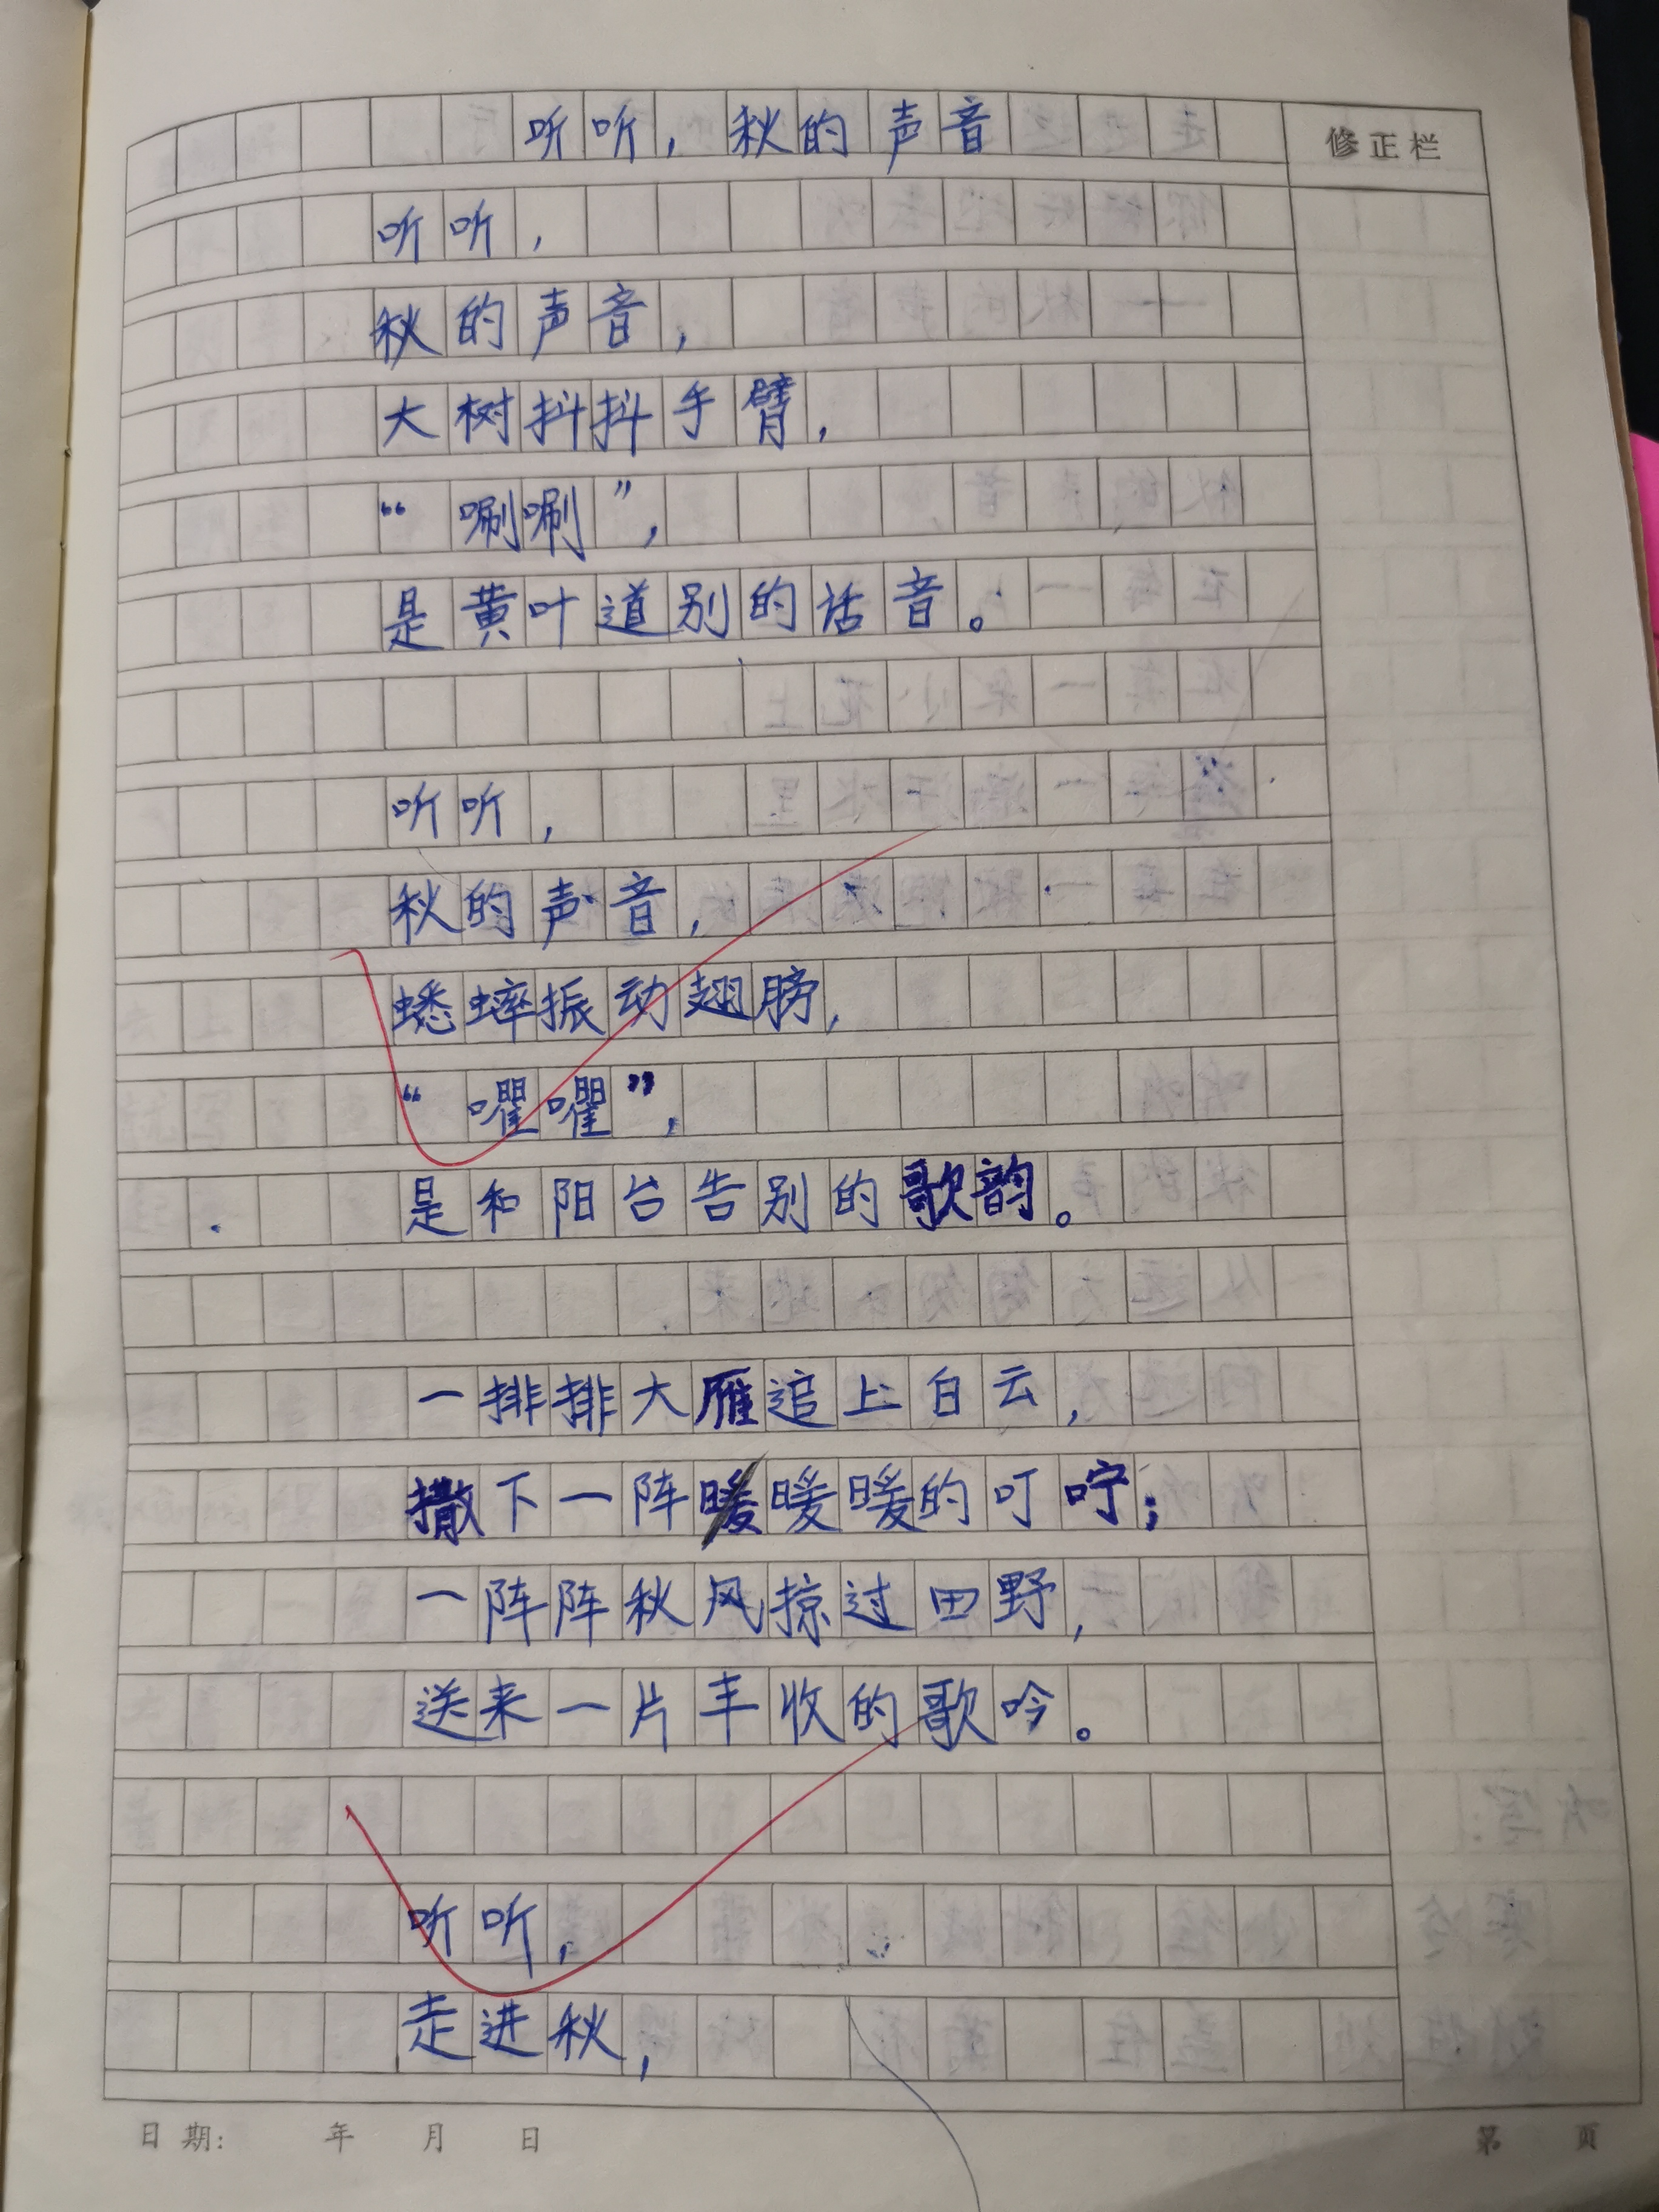 听听，秋的声音
修正栏
听听，
秋的声音，
大树抖抖手臂，
“唰唰”，
是黄叶道别的话音。
听听，
秋的声音，
蟋蟀振动翅膀，
“㘗㘗”，
是和阳台告别的歌韵。
一排排大雁追上白云，
撒下一阵暖暖的叮咛；
一阵阵秋风掠过田野，
送来一片丰收的歌吟。
听听，
走进秋，
日期： 年 月 日
第 页